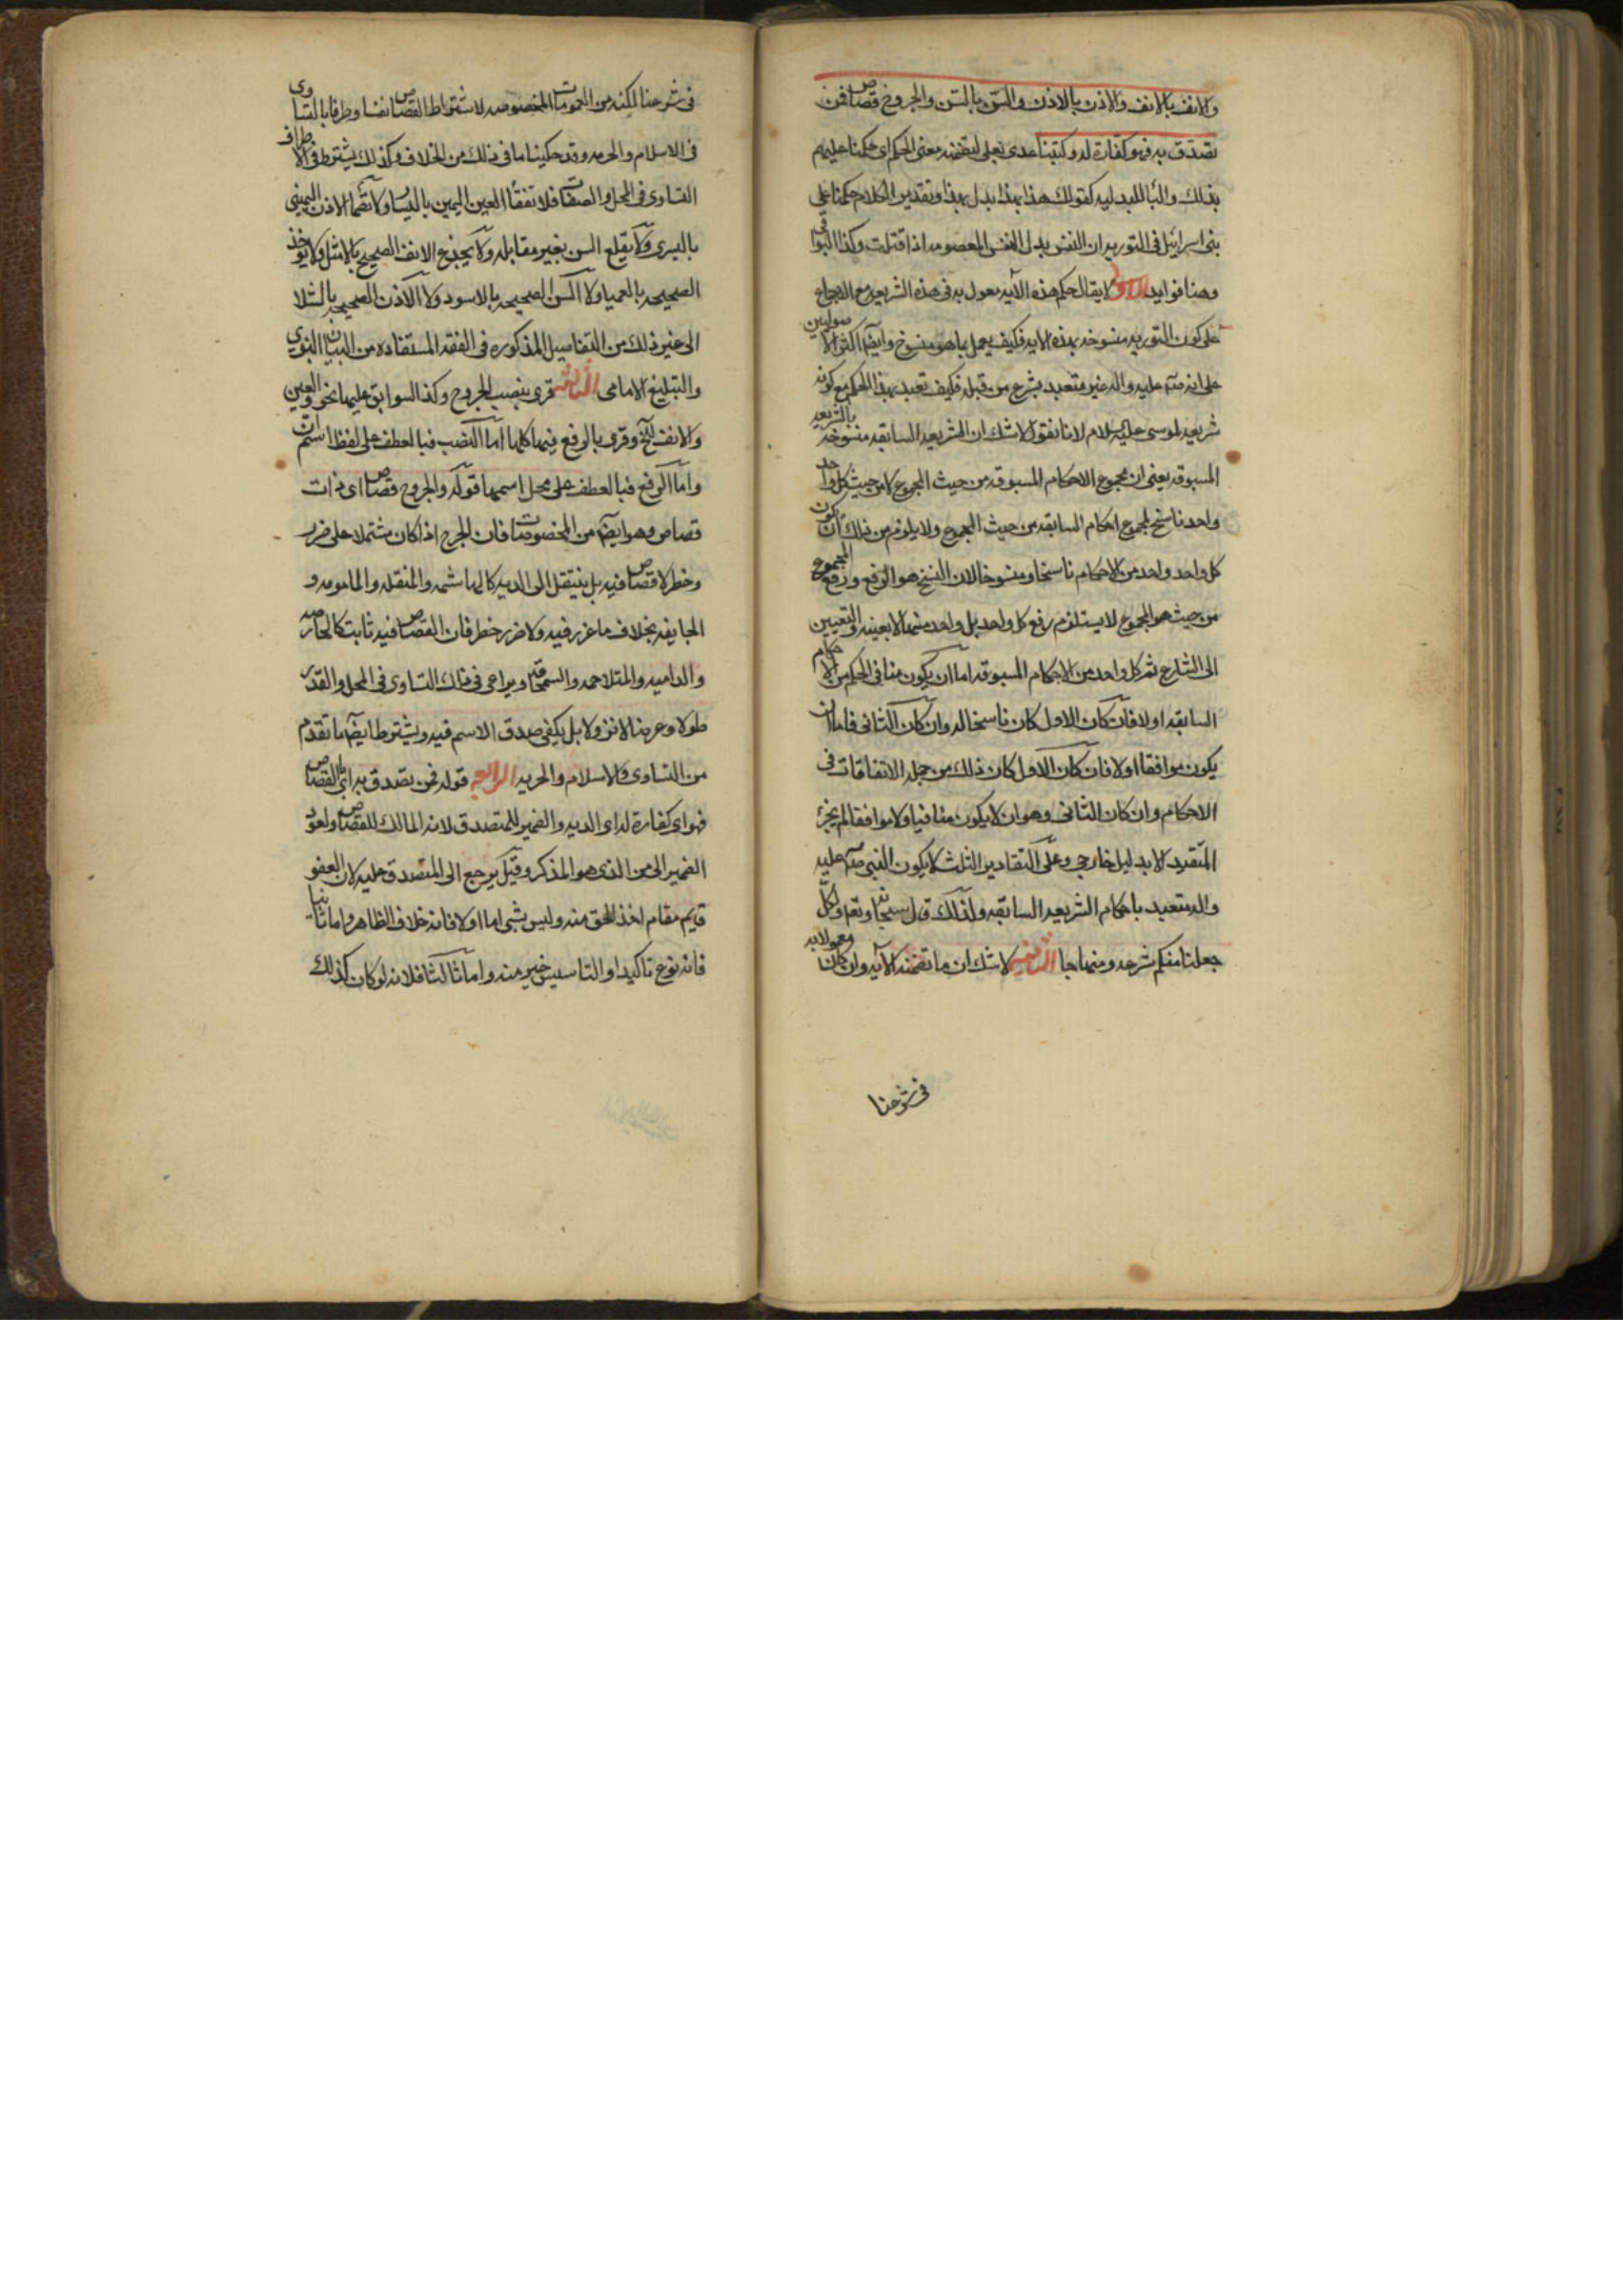 والانف بالانف والاذن بالاذن والسن بالسن والجروح قصاص فمن
تصدق به فهو كفارة له وكتبنا عدى بعلى لتضمنه معنى الحكم اى حكمنا عليهم
بذلك والبا للبدليه كقولك هذا بهذا بدل بهذا وتقدير الكلام حكمنا على
بنى اسرائيل فى التوريه ان النفس بدل النفس المعصومه اذا قتلت وكذا البواقى
وهنا فوايد الاولى لا يقال حكم هذه الآيه معمول به فى هذه الشريعه مع الاجماع
على كون التوريه منسوخه بهذه الايه فكيف يعمل بما هو منسوخ وايضا اكثر الاصوليين
على انه صلى الله عليه واله غير متعبد بشرع من قبله فكيف تعبد بهذا الحكم مع كونه
شريعه لموسى عليه السلام لانا نقول لا شك ان الشريعه السابقه منسوخه بالشريعه
المسبوقه يعنى ان مجموع الاحكام المسبوقه من حيث المجموع لا من حيث كل واحد
واحد ناسخ لمجموع احكام السابقه من حيث المجموع ولا يلزم من ذلك ان يكون
كل واحد واحد من الاحكام ناسخا ومنسوخا لان النسخ هو الرفع ورفع المجموع
من حيث هو المجموع لا يستلزم رفع كل واحد بل واحد منها لا بعينه والتعيين
الى الشارع ثم كل واحد من الاحكام المسبوقه اما ان يكون منافى الحكم من الاحكام
السابقه اولا فان كان الاول كان ناسخا له وان كان الثانى فاما ان
يكون موافقا اولا فان كان الاول كان ذلك من جمله الاتفاقات فى
الاحكام وان كان الثانى وهو ان لا يكون منافيا ولا موافقا لم يجز
التعبد الا بدليل خارجى وعلى التقادير الثلث لا يكون النبى صلى الله عليه
واله متعبد باحكام الشريعه السابقه ولذلك قال سبحانه وتعم ولكل
جعلنا منكم شرعه ومنهاجا الثانيه لا شك ان ما تضمنه الآيه وان كان معمولا به
فى شرعنا
فى شرعنا لكنه من العمومات المخصوصه لاشتراط القصاص نفسا وطرفا بالتساوى
فى الاسلام والحريه وقد حكينا ما فى ذلك من الخلاف وكذلك يشترط فى الاطراف
التساوى فى المحل والصفات فلا تفقأ العين اليمين باليسار ولا تصما الاذن اليمنى
باليسرى ولا يقلع السن بغير مقابله ولا يجذع الانف الصحيح بالاشل ولا يؤخذ
الصحيحه بالعميا ولا السن الصحيحه بالاسود ولا الاذن الصحيحه بالشلا
الى غير ذلك من التفاصيل المذكوره فى الفقه المستفاده من البيان النبوى
والتبليغ الامامى الثالثه قرى بنصب الجروح وكذا السوابق عليها نحو والعين
والانف الخ وقرى بالرفع فيها كلها اما النصب فبالعطف على لفظ اسم ان
واما الرفع فبالعطف على محل اسمها قوله والجروح قصاص اى ذات
قصاص وهو ايضا من المخصوصات فان الجرح اذا كان مشتملا على ضرر
وخطر لا قصاص فيه بل ينتقل الى الديه كالهاشمه والمنقله والمامومه و
الجايفه بخلاف ما عزر فيه ولا ضرر خطر فان القصاص فيه ثابت كالحارصه
والداميه والمتلاحمه والسمحاق ويراعى فى ذلك التساوى فى المحل والقدر
طولا وعرضا لا نزولا بل يكفى صدق الاسم فيه ويشترط ايضا ما تقدم
من التساوى فى الاسلام والحريه الرابعه قوله فمن تصدق به اى بالقصاص
فهو اى كفارة له اى الديه والضمير للمتصدق لانه المالك للقصاص ولعود
الضمير الى من الذى هو المذكر وقيل يرجع الى المتصدق عليه لان العفو
قايم مقام اخذ الحق منه وليس بشى اما اولا فانه خلاف الظاهر واما ثانيا
فانه نوع تاكيد او التاسيس خير منه واما ثالثا فلانه لو كان كذلك